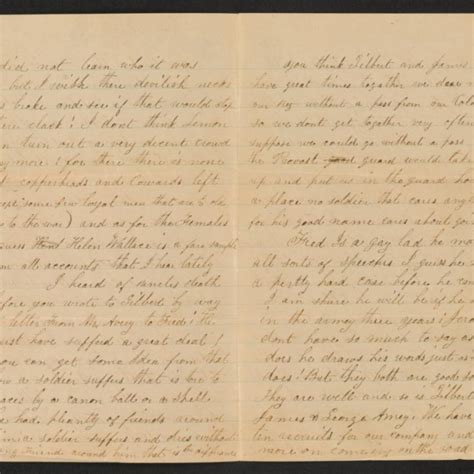 did not learn who it was
but I wish there devilish necks
broke and see if that would stop
there clack! I dont think
turn out a very decent crowd
any more! for there there is none
copperheads and Cowards left
some few Loyal men that are to old
to the war) and as for the Females
Helen Wallace is a fare sample
all accounts that I hear lately
I heard of death
before you wrote to Gilbert by way
letter From Mr Avery to Fred! He
must have sufferd a great deal!
you can get some Idea from that
how a soldier suffers that is tore to
peaces by a canon ball or a Shell.
He had plenty of friends around
a soldier suffers and dies without
Friend around him that is the difference
you think Gilbert and James
have great times together we dare
without a pass from our Col
so we dont get together very often
suppose we could go without a pass
the Provost guard would take
up and put us in the guard house
a place no soldier that cares any
for his good name cares about
Fred Is a gay lad he makes
all sorts of speeches I guess he
a pretty hard case before he
I am shure he will be if he is
in the army three years!
dont have so much to say as
does he draws his words just as
does! But they both are good
They are well and so is Gilbert
James & George Amey. We have
ten recruits for our company and
more on coming on the road